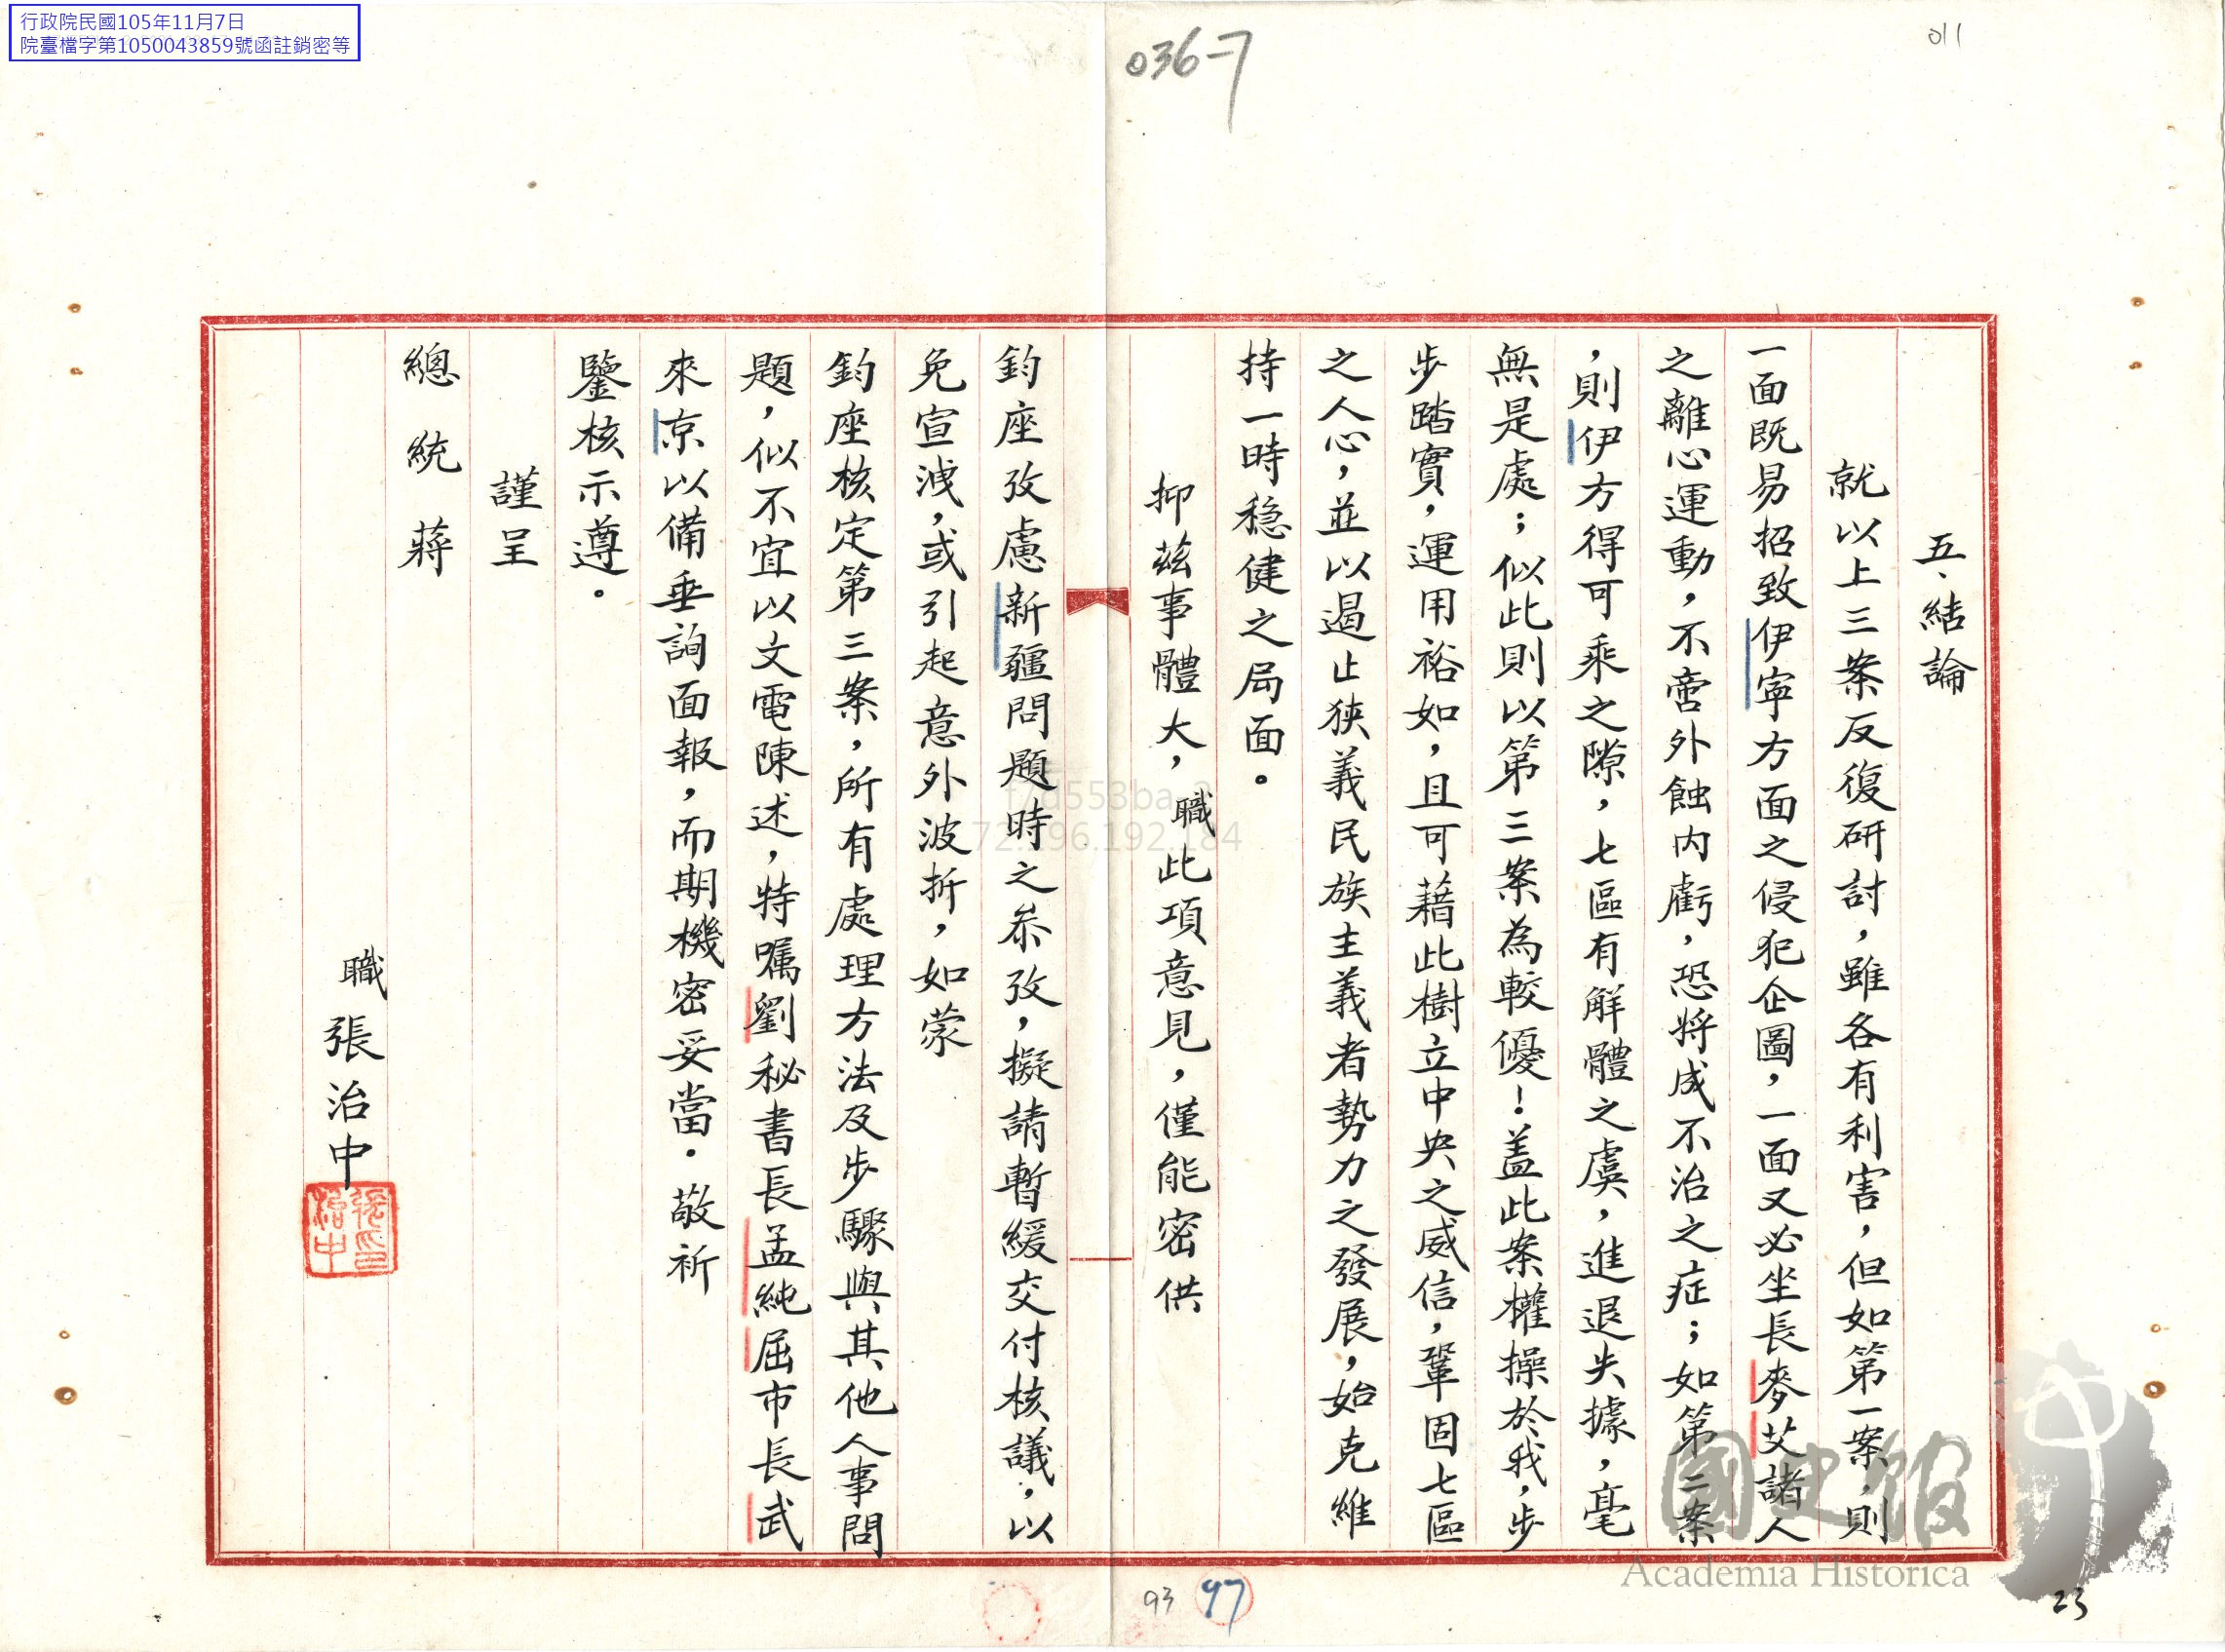 行政院民國105年11月7日
院臺檔字第1050043859號函註銷密等
036-7
011
五、結論
就以上三案反復研討，雖各有利害，但如第一案，則
一面既易招致伊寧方面之侵犯企圖，一面又必坐長麥艾諸人
之離心運動，不啻外蝕内虧，恐將成不治之症；如第二案
，則伊方得可乘之隙，七區有解體之虞，進退失據，毫
無是處；似此則以第三案為較優！盖此案權操於我，步
步踏實，運用裕如，且可藉此樹立中央之威信，鞏固七區
之人心，並以遏止狹義民族主義者勢力之發展，始克維
持一時穩健之局面。
抑茲事體大，職此項意見，僅能密供
鈞座攷慮新疆問題時之叅攷，擬請暫緩交付核議，以
免宣洩，或引起意外波折，如蒙
鈞座核定第三案，所有處理方法及步驟與其他人事問
題，似不宜以文電陳述，特嘱劉秘書長孟純屈市長武
來京以備垂詢面報，而期機密妥當．敬祈
鑒核示遵。
謹呈
總統 蔣
職張治中
張治中印
f7d553ba-2
72.196.192.184
國史館
Academia Historica
93
97
23